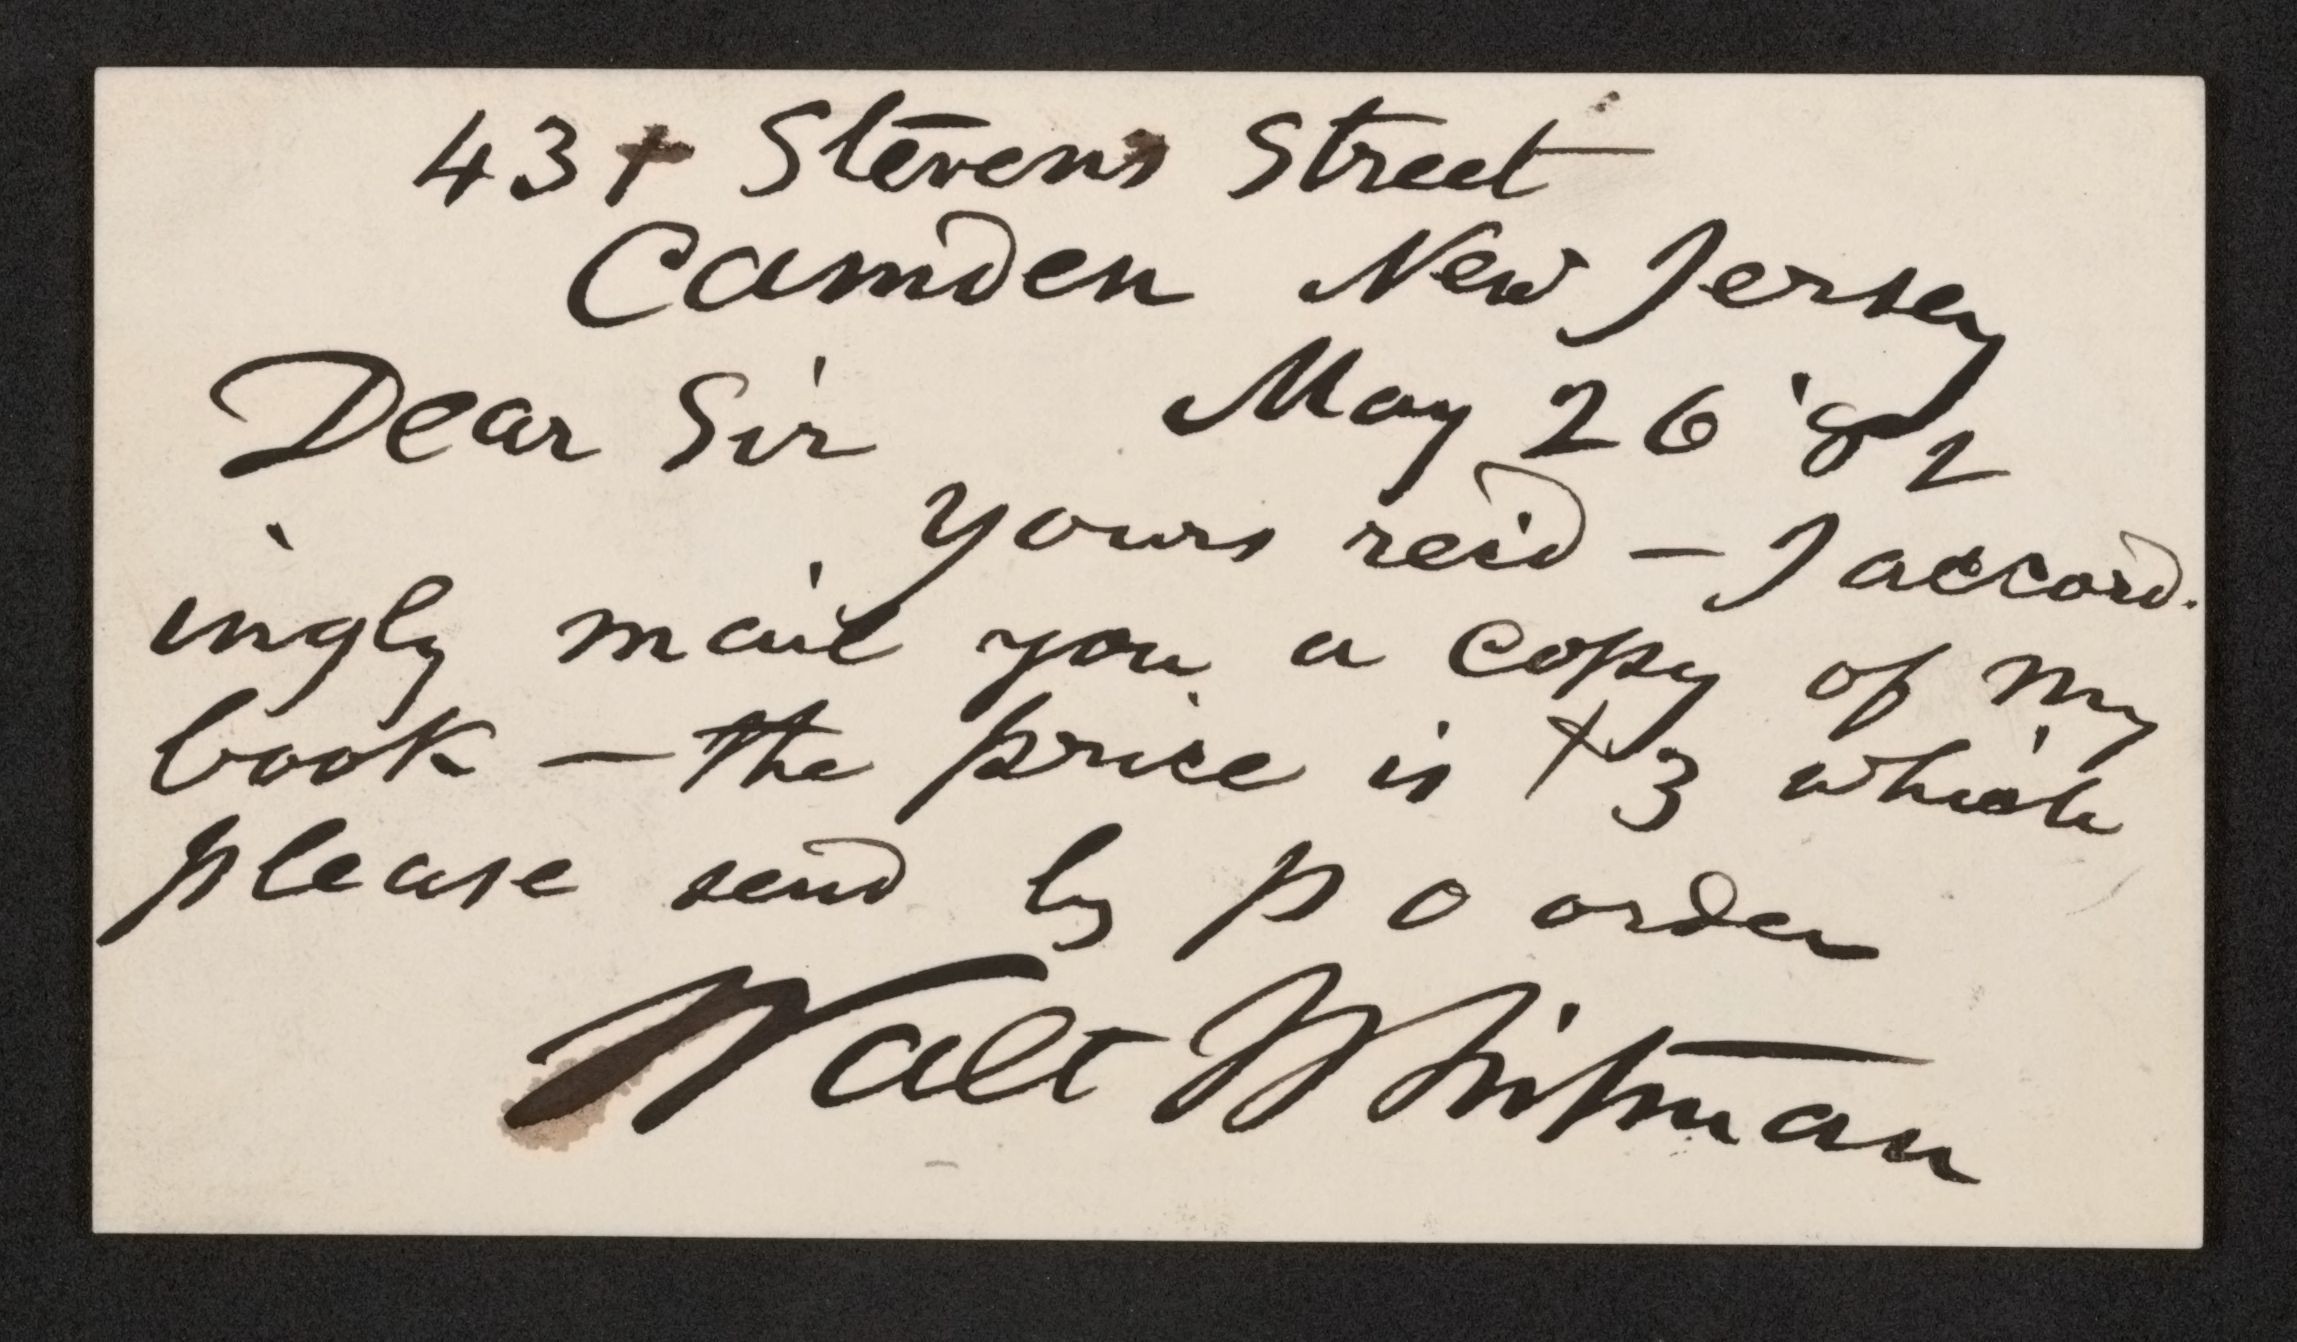 431 Stevens Street
Camden New Jersey
Dear Sir May 26 '82
Yours rec'd – I accord-
ingly mail you a copy of my
book – the price is $3 which
please send by p o order
Walt Whitman